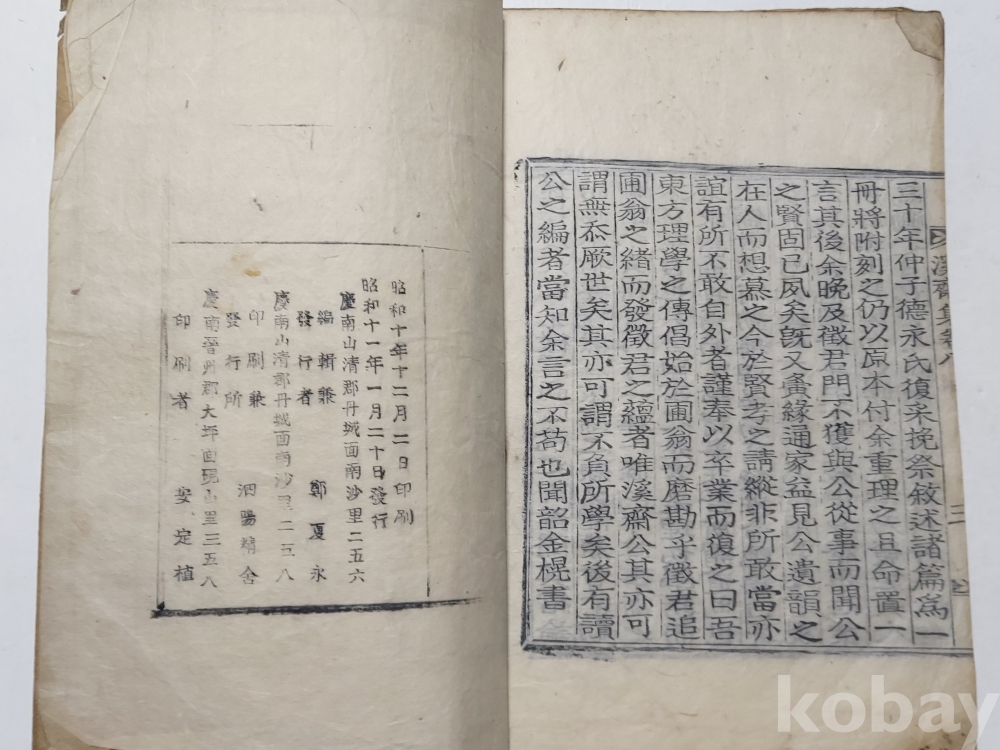 溪齋集卷八
二
三十年仲子德永氏復采挽祭敘述諸篇爲一
冊將附刻之仍以原本付余重理之且命置一
言其後余晚及徵君門不獲與公從事而聞公
之賢固已夙矣旣又夤緣通家益見公遺韻之
在人而想慕之今於賢孝之請縱非所敢當亦
誼有所不敢自外者謹奉以卒業而復之曰吾
東方理學之傳倡始於圃翁而磨勘乎徵君追
圃翁之緖而發徵君之蘊者唯溪齋公其亦可
謂無忝厥世矣其亦可謂不負所學矣後有讀
公之編者當知余言之不苟也聞韶金榥書
昭和十年十二月二日印刷
昭和十一年一月二十日發行
慶南山清郡丹城面南沙里二五六
編輯兼
發行者 鄭夏永
慶南山清郡丹城面南沙里二五八
印刷兼
發行所 泗陽精舍
慶南晉州郡大坪面 山里三五八
印刷者 安定植
kobay